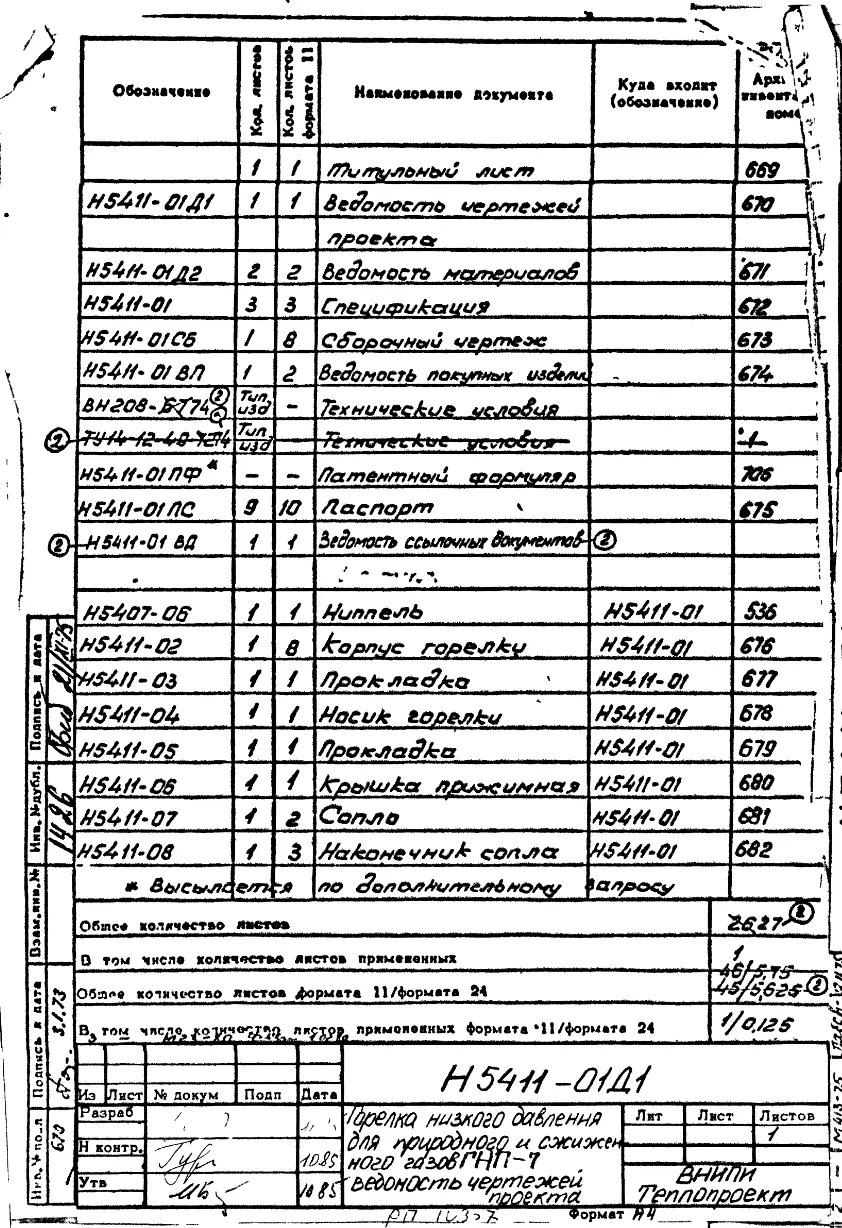 Обозначение Кол. листов Кол. листов формата 11 Наименование документа Куда входит (обозначение) Арх инвент ном
1 1 Титульный лист 669
Н5411-01Д1 1 1 Ведомость чертежей 670
проекта
Н5411-01Д2 2 2 Ведомость материалов 671
Н5411-01 3 3 Спецификация 672
Н5411-01СБ 1 8 Сборочный чертеж 673
Н5411-01ВП 1 2 Ведомость покупных изделий 674
ВН208- 74 ② Тип. изд - Технические условия
② ТУ14-12-40 Тип изд Технические условия
Н5411-01ПФ * - - Патентный формуляр 706
Н5411-01ПС 9 10 Паспорт 675
② Н5411-01 ВД 1 1 Ведомость ссылочных документов ②
Н5407-06 1 1 Ниппель Н5411-01 536
Н5411-02 1 8 Корпус горелки Н5411-01 676
Н5411-03 1 1 Прокладка Н5411-01 677
Н5411-04 1 1 Носик горелки Н5411-01 678
Н5411-05 1 1 Прокладка Н5411-01 679
Н5411-06 1 1 Крышка прижимная Н5411-01 680
Н5411-07 1 2 Сопло Н5411-01 681
Н5411-08 1 3 Наконечник сопла Н5411-01 682
* Высылается по дополнительному запросу
Общее количество листов 26 27 ②
В том числе количество листов примененных 1
Общее количество листов формата 11/формата 24 46/5,75 45/5,625 ②
В том числе количество листов примененных формата 11/формата 24 1/0,125
Подпись и дата
Инв. № дубл. 1426
Взам. инв. №
Подпись и дата 3.1.73
Инв. № подл 670
Н5411-01Д1
Из Лист № докум Подп Дата
Разраб
Н контр. 1085
Утв 1085
Горелка низкого давления
для природного и сжижен
ного газов ГНП-7
Ведомость чертежей
проекта
Лит Лист Листов
1
ВНИПИ
Теплопроект
Формат А4